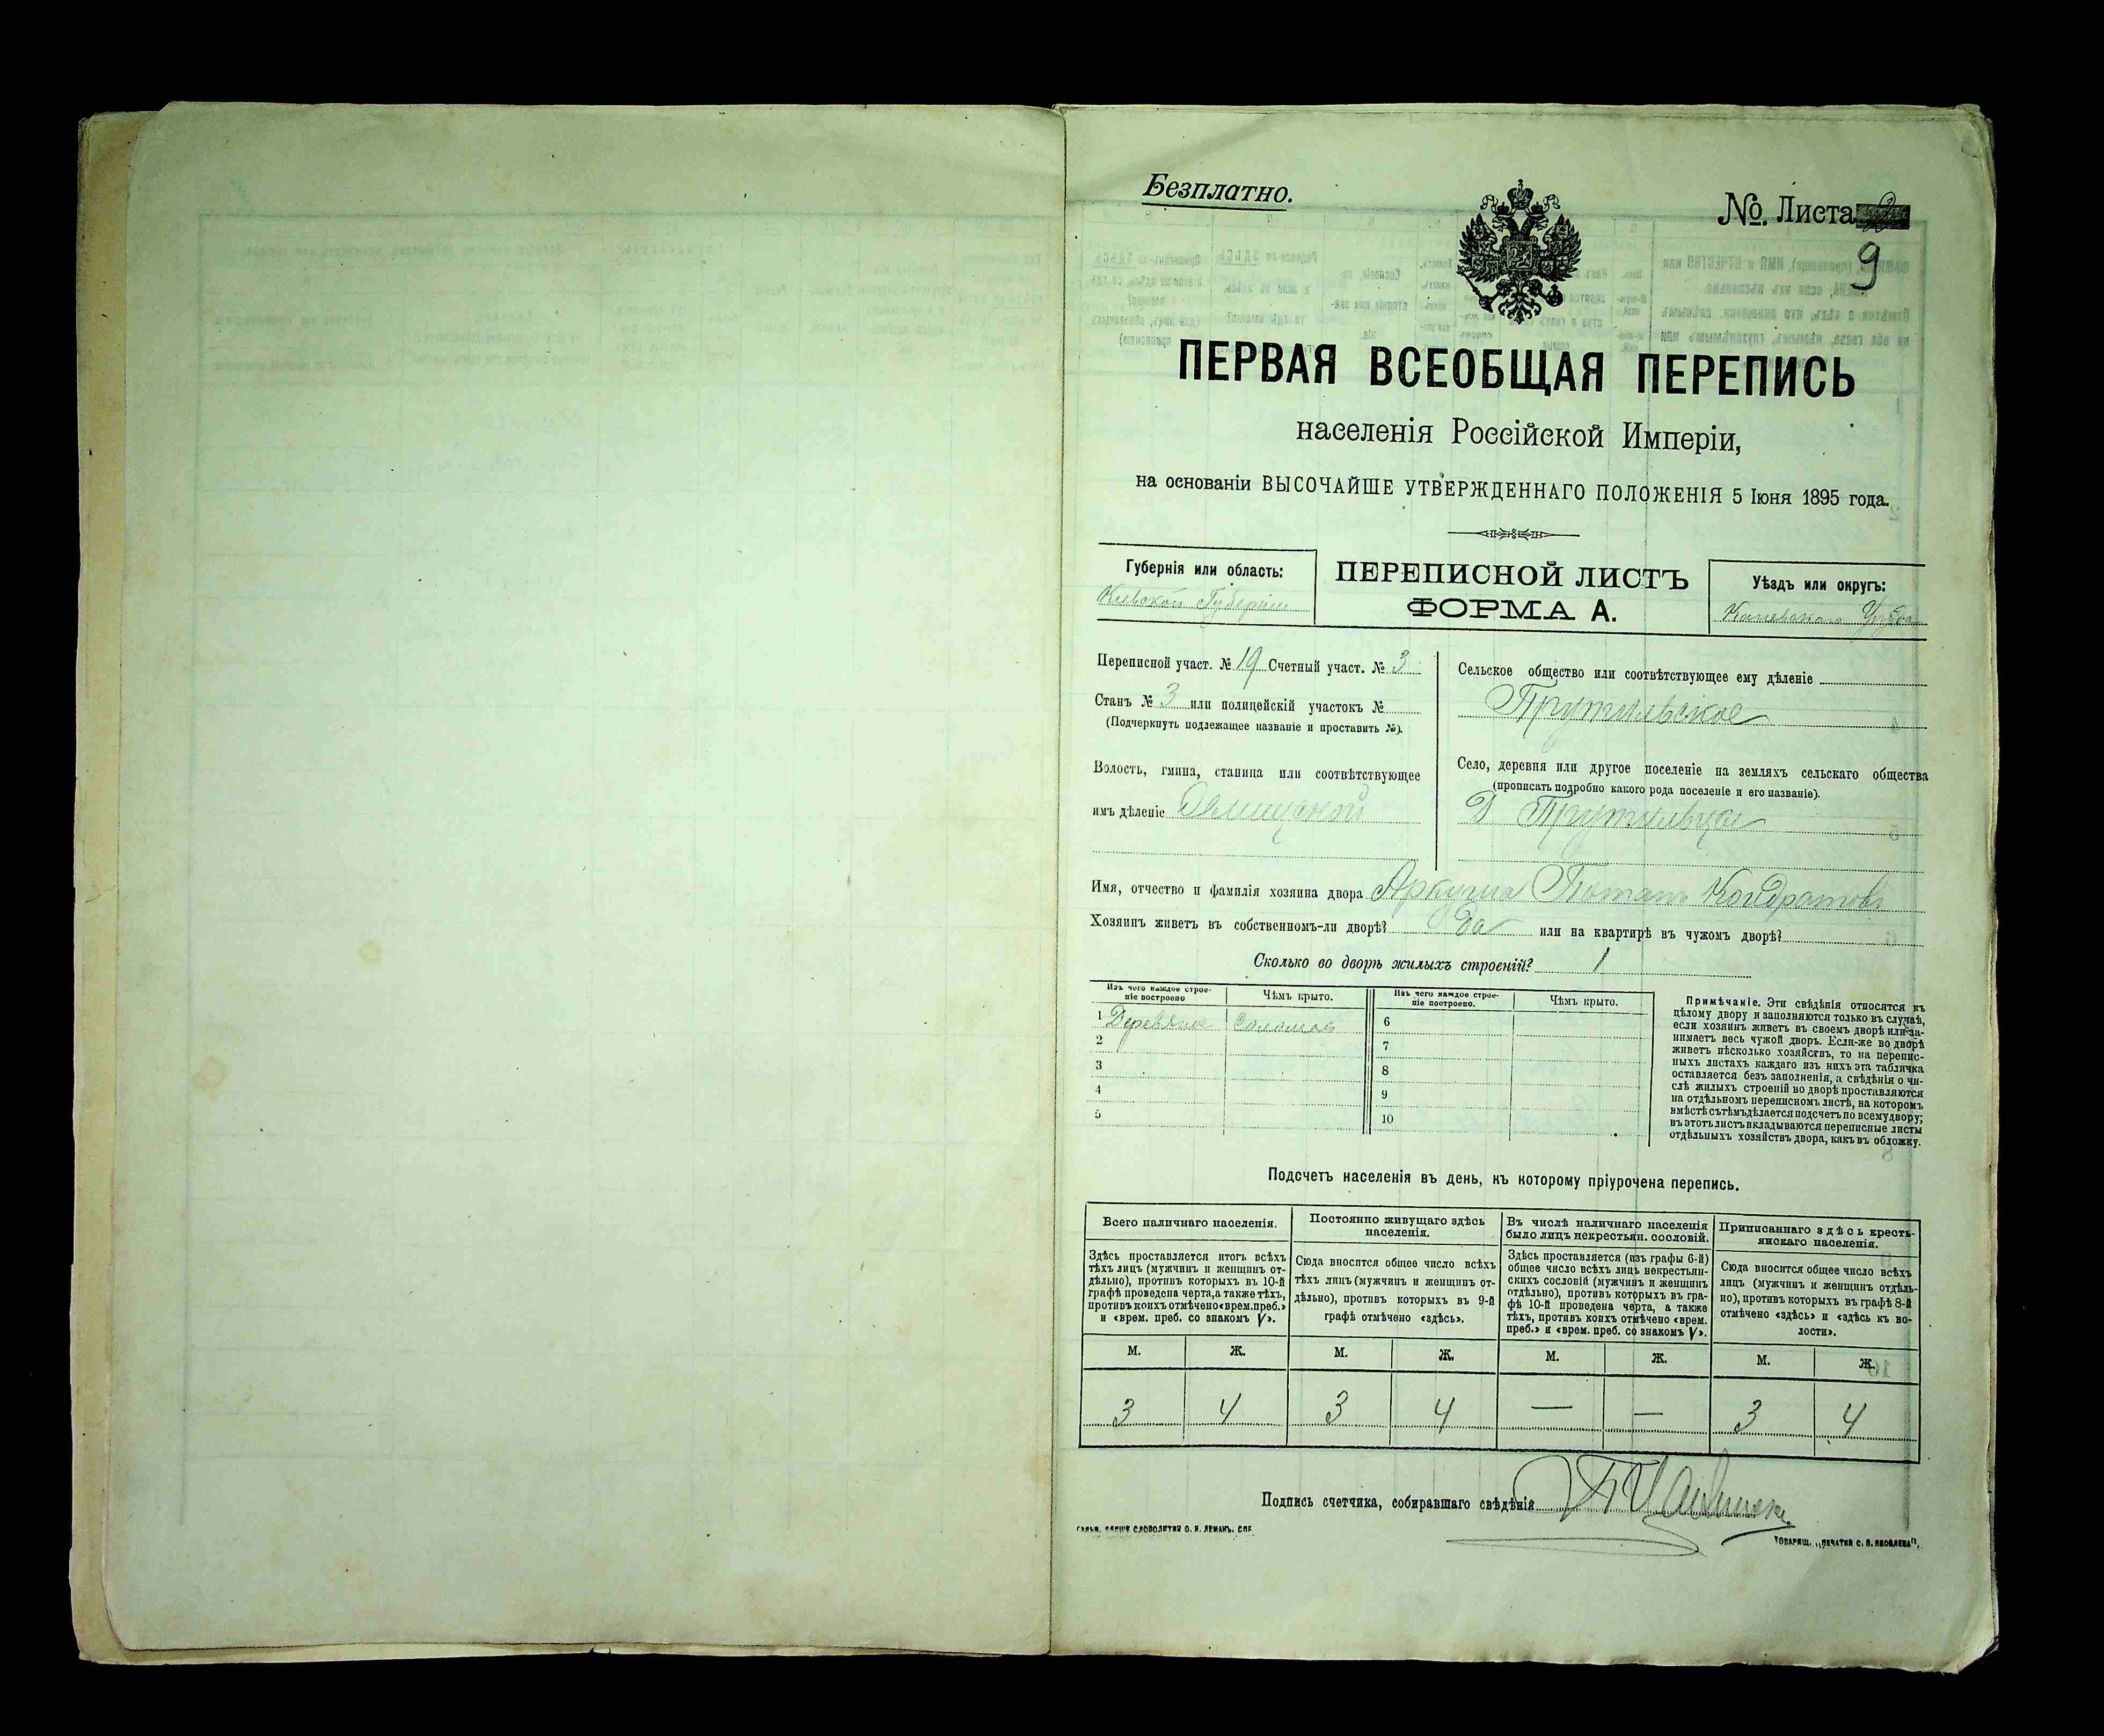 Безплатно.
№. Листа
9
ПЕРВАЯ ВСЕОБЩАЯ ПЕРЕПИСЬ
населенія Россійской Имперіи,
на основаніи ВЫСОЧАЙШЕ УТВЕРЖДЕННАГО ПОЛОЖЕНІЯ 5 Іюня 1895 года.
Губернія или область:
Кіевской Губерніи
ПЕРЕПИСНОЙ ЛИСТЪ
ФОРМА А.
Уѣздъ или округъ:
Каневскаго Уѣзда
Переписной участ. № 19 Счетный участ. № 3
Станъ № 3 или полицейскій участокъ №
(Подчеркнуть подлежащее названіе и проставить №).
Волость, гмина, станица или соотвѣтствующее
имъ дѣленіе
Сельское общество или соотвѣтствующее ему дѣленіе
Село, деревня или другое поселеніе на земляхъ сельскаго общества
(прописать подробно какого рода поселеніе и его названіе).
Д
Имя, отчество и фамилія хозяина двора Аркуша Потапъ Кондратовъ
Хозяинъ живетъ въ собственномъ-ли дворѣ? Да или на квартирѣ въ чужомъ дворѣ?
Сколько во дворѣ жилыхъ строеній? 1
Изъ чего каждое строе-
ніе построено
Чѣмъ крыто.
Изъ чего каждое строе-
ніе построено.
Чѣмъ крыто.
1 соломой
2
3
4
5
6
7
8
9
10
Примѣчаніе. Эти свѣдѣнія относятся къ
цѣлому двору и заполняются только въ случаѣ,
если хозяинъ живетъ въ своемъ дворѣ или за-
нимаетъ весь чужой дворъ. Если-же во дворѣ
живетъ нѣсколько хозяйствъ, то на перепис-
ныхъ листахъ каждаго изъ нихъ эта табличка
оставляется безъ заполненія, а свѣдѣнія о чи-
слѣ жилыхъ строеній во дворѣ проставляются
на отдѣльномъ переписномъ листѣ, на которомъ
вмѣстѣ съ тѣмъ дѣлается подсчетъ по всему двору;
въ этотъ листъ вкладываются переписные листы
отдѣльныхъ хозяйствъ двора, какъ въ обложку.
Подсчетъ населенія въ день, къ которому пріурочена перепись.
Всего наличнаго населенія.
Здѣсь проставляется итогъ всѣхъ
тѣхъ лицъ (мужчинъ и женщинъ от-
дѣльно), противъ которыхъ въ 10-й
графѣ проведена черта, а также тѣхъ,
противъ коихъ отмѣчено «врем. преб.»
и «врем. преб. со знакомъ V».
Постоянно живущаго здѣсь
населенія.
Сюда вносится общее число всѣхъ
тѣхъ лицъ (мужчинъ и женщинъ от-
дѣльно), противъ которыхъ въ 9-й
графѣ отмѣчено «здѣсь».
Въ числѣ наличнаго населенія
было лицъ некрестьян. сословій.
Здѣсь проставляется (изъ графы 6-й)
общее число всѣхъ лицъ некрестьян-
скихъ сословій (мужчинъ и женщинъ
отдѣльно), противъ которыхъ въ гра-
фѣ 10-й проведена черта, а также
тѣхъ, противъ коихъ отмѣчено «врем.
преб.» и «врем. преб. со знакомъ V».
Приписаннаго здѣсь кресть-
янскаго населенія.
Сюда вносится общее число всѣхъ
лицъ (мужчинъ и женщинъ отдѣль-
но), противъ которыхъ въ графѣ 8-й
отмѣчено «здѣсь» и «здѣсь къ во-
лости».
М. Ж. М. Ж. М. Ж. М. Ж.
3 4 3 4 — — 3 4
Подпись счетчика, собиравшаго свѣдѣнія
СЛОВОЛИТНИ О. И. ЛЕМАНЪ. СПБ.
ТОВАРИЩ. „ПЕЧАТНЯ С. П. ЯКОВЛЕВА".